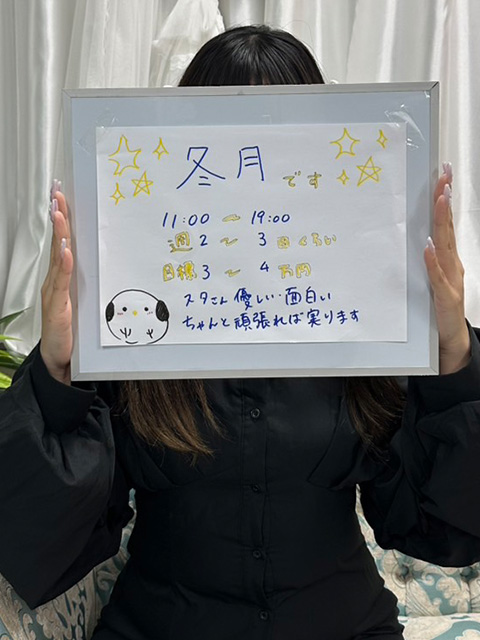 冬月です
11:00 ~ 19:00
週2 ~ 3日くらい
目標3 ~ 4万円
スタさん優しい・面白い
ちゃんと頑張れば実ります